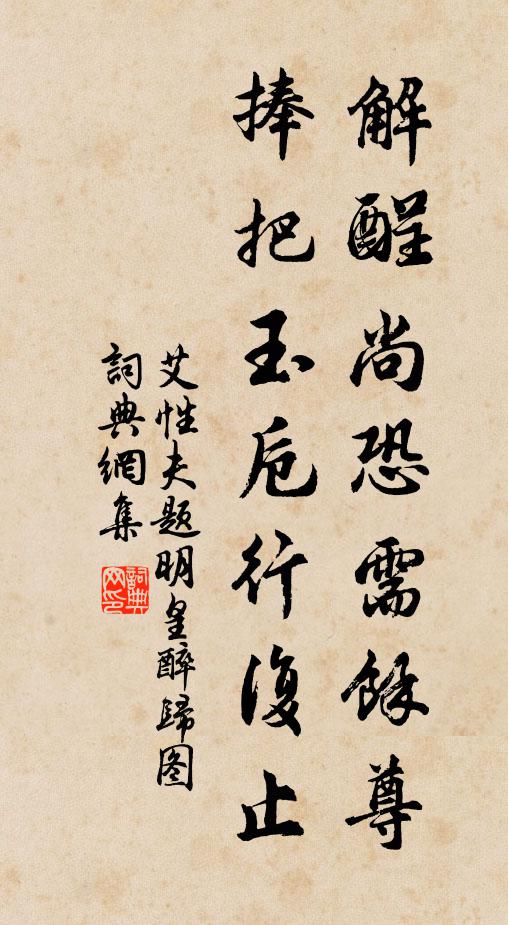 解酲尚恐需餘尊
捧把玉卮行復止
艾性夫題明皇醉歸图
詞典網集
詞典网印